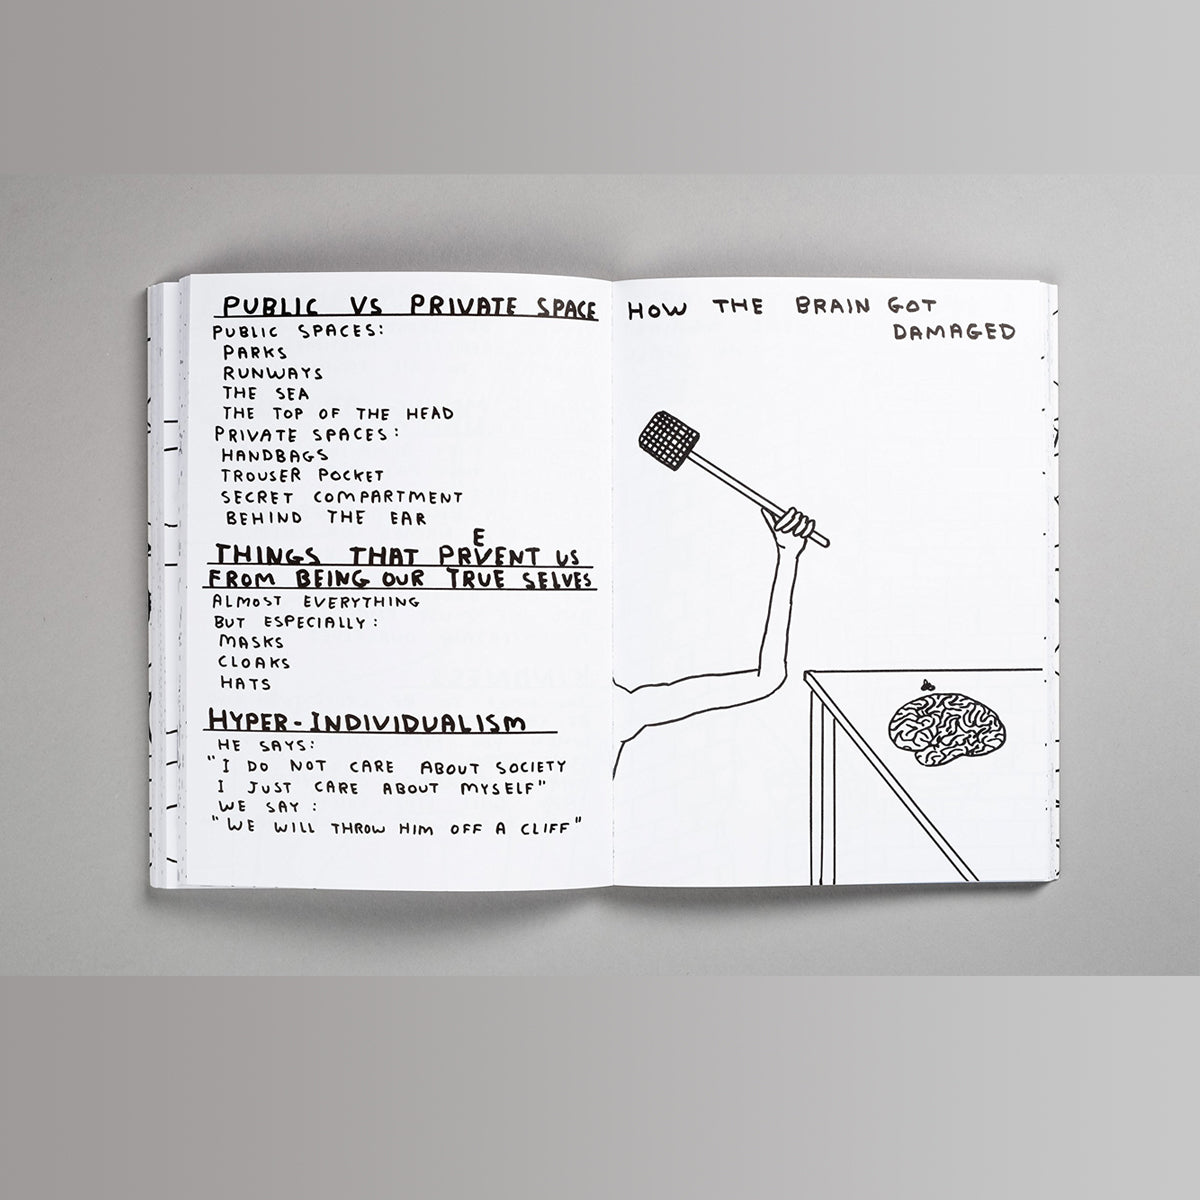 PUBLIC VS PRIVATE SPACE
PUBLIC SPACES:
PARKS
RUNWAYS
THE SEA
THE TOP OF THE HEAD
PRIVATE SPACES:
HANDBAGS
TROUSER POCKET
SECRET COMPARTMENT
BEHIND THE EAR
THINGS THAT PREVENT US
FROM BEING OUR TRUE SELVES
ALMOST EVERYTHING
BUT ESPECIALLY:
MASKS
CLOAKS
HATS
HYPER-INDIVIDUALISM
HE SAYS:
"I DO NOT CARE ABOUT SOCIETY
I JUST CARE ABOUT MYSELF"
WE SAY:
"WE WILL THROW HIM OFF A CLIFF"
HOW THE BRAIN GOT
DAMAGED